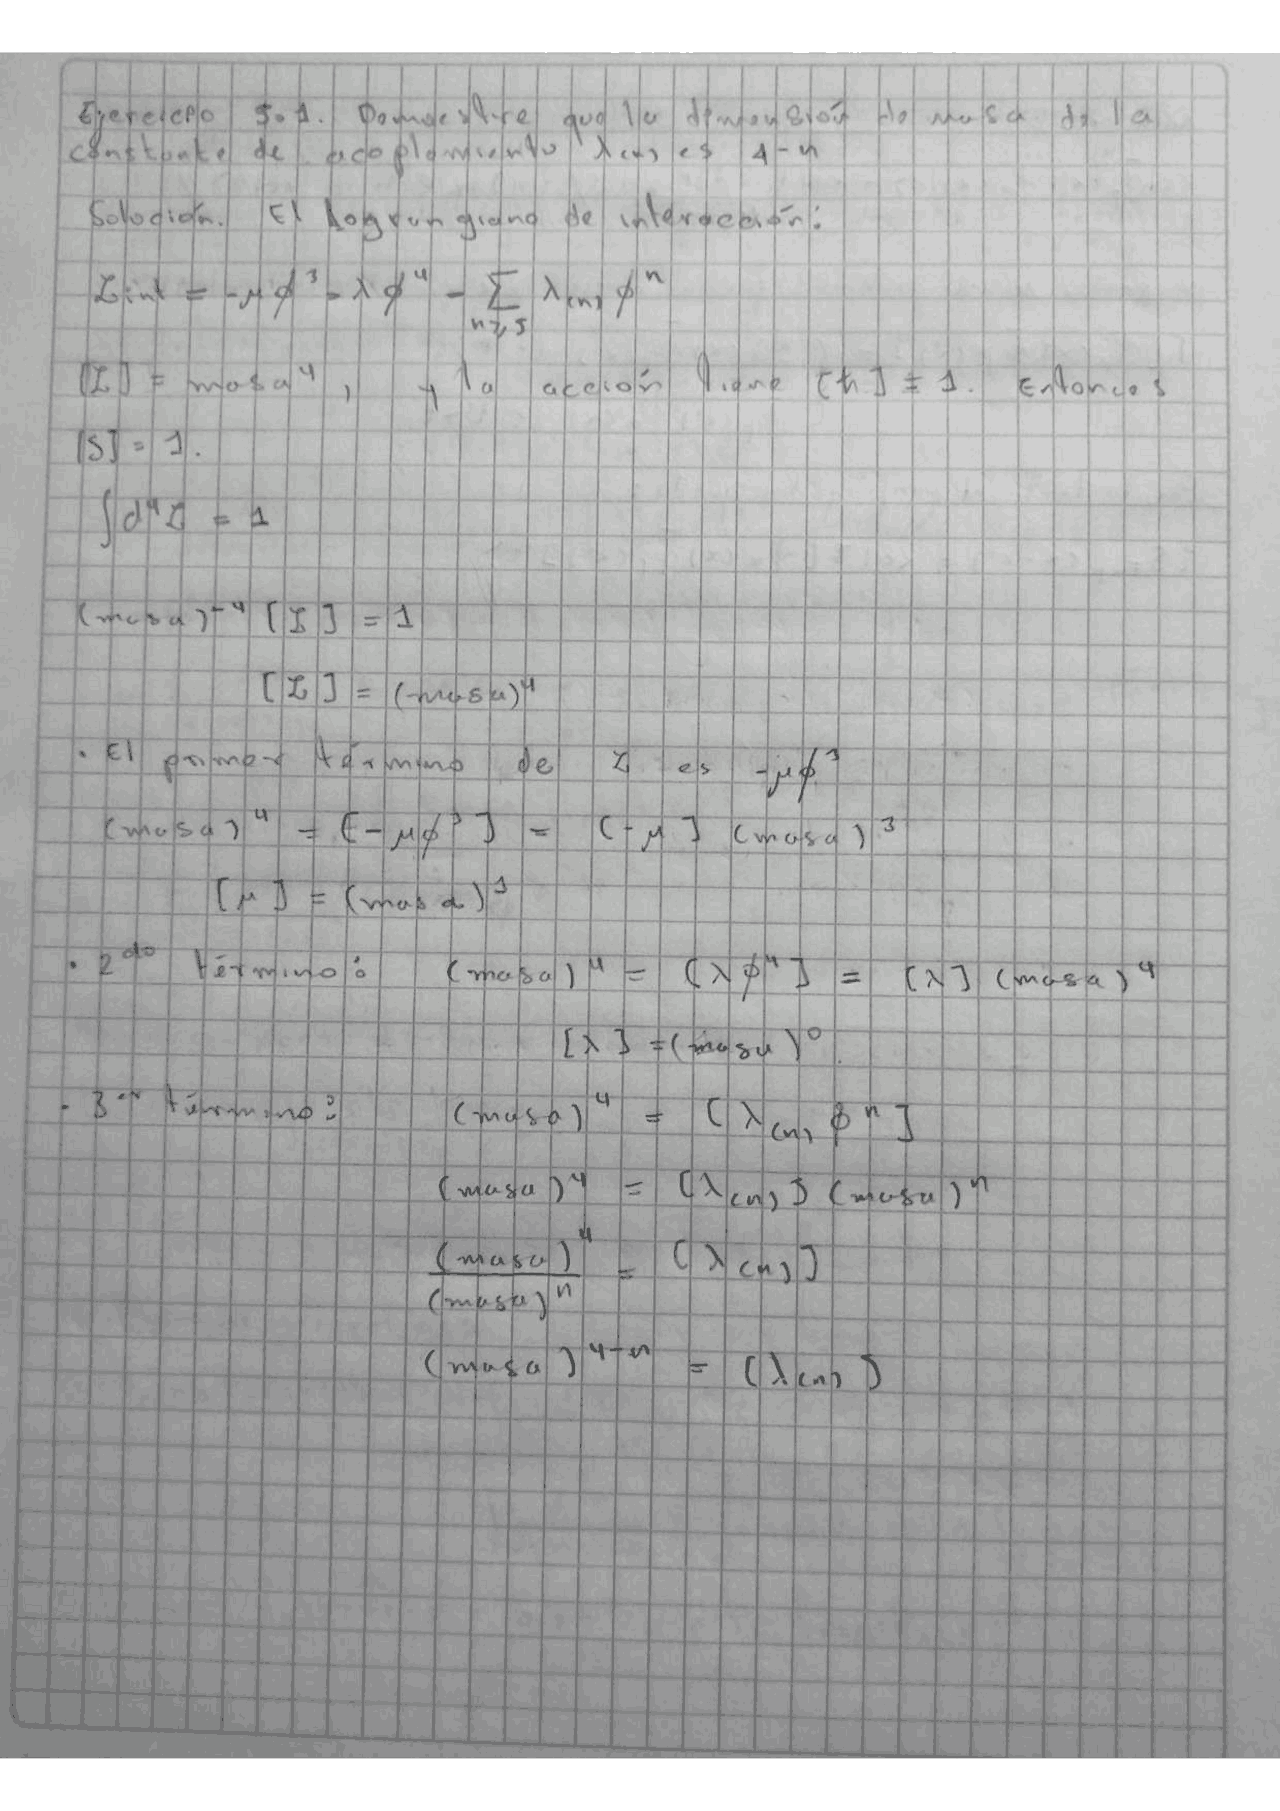 Ejercicio 5.1. Demuestre que la dimensión de masa de la
constante de acoplamiento λ(n) es 4-n
Solución. El Lagrangiano de interacción:
ℒint = -μϕ³ - λϕ⁴ - ∑ λ(n) ϕⁿ
n≥5
[ℒ] = masa⁴, y la acción tiene [ħ] = 1. Entonces
[S] = 1.
∫d⁴ℒ = 1
(masa)⁻⁴ [ℒ] = 1
[ℒ] = (masa)⁴
· El primer término de ℒ es -μϕ³
(masa)⁴ = [-μϕ³] = [-μ] (masa)³
[μ] = (masa)¹
· 2do término: (masa)⁴ = [λϕ⁴] = [λ] (masa)⁴
[λ] = (masa)⁰.
· 3er término: (masa)⁴ = [λ(n) ϕⁿ]
(masa)⁴ = [λ(n)] (masa)ⁿ
(masa)⁴ / (masa)ⁿ = [λ(n)]
(masa)⁴⁻ⁿ = [λ(n)]